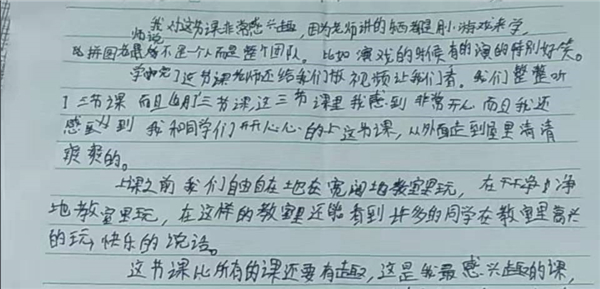 我对这节课非常感兴趣,因为老师讲的东西都是用小游戏来学,
老师说
比拼图老最后不是一个人而是整个团队。比如演戏的时候有的演的特别好笑。
学完了这节课老师还给我们放视频让我们看。我们整整听
了三节课而且上了三节课这三节课里我感到非常开心而且我还
感到我和同学们开开心心的上这节课,从外面走到屋里清清
爽爽的。
上课之前我们自由自在地在宽阔地教室里玩,在干干净净
地教室里玩,在这样的教室里还能看到许多的同学在教室里高兴
的玩,快乐的说话。
这节课比所有的课还要有趣,这是我最感兴趣的课,